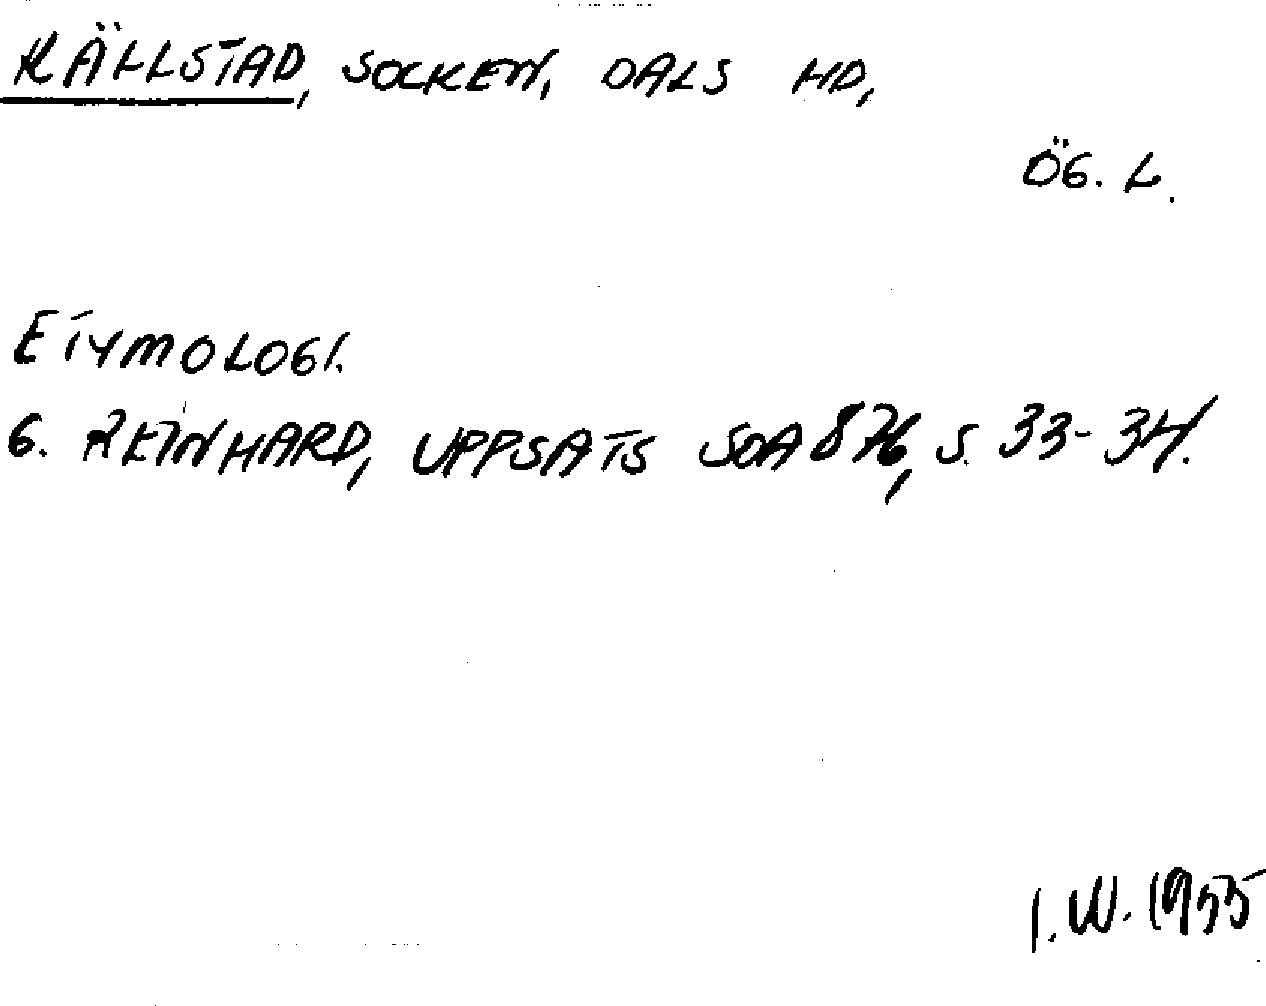 KÄLLSTAD, SOCKEN, DALS HD,
ÖG. L.
ETYMOLOGI.
G. REINHARD, UPPSATS SOA 876, S. 33-34.
I. W. 1955